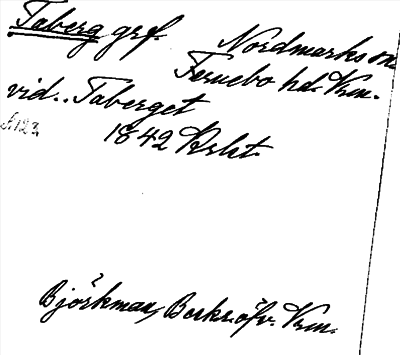 Taberg grf. Nordmarks sn
Fernebo hd. Vrm.
vid. Taberget
s. 123
1842 Arkt.
Björkman, Berksöfv. Vrm.